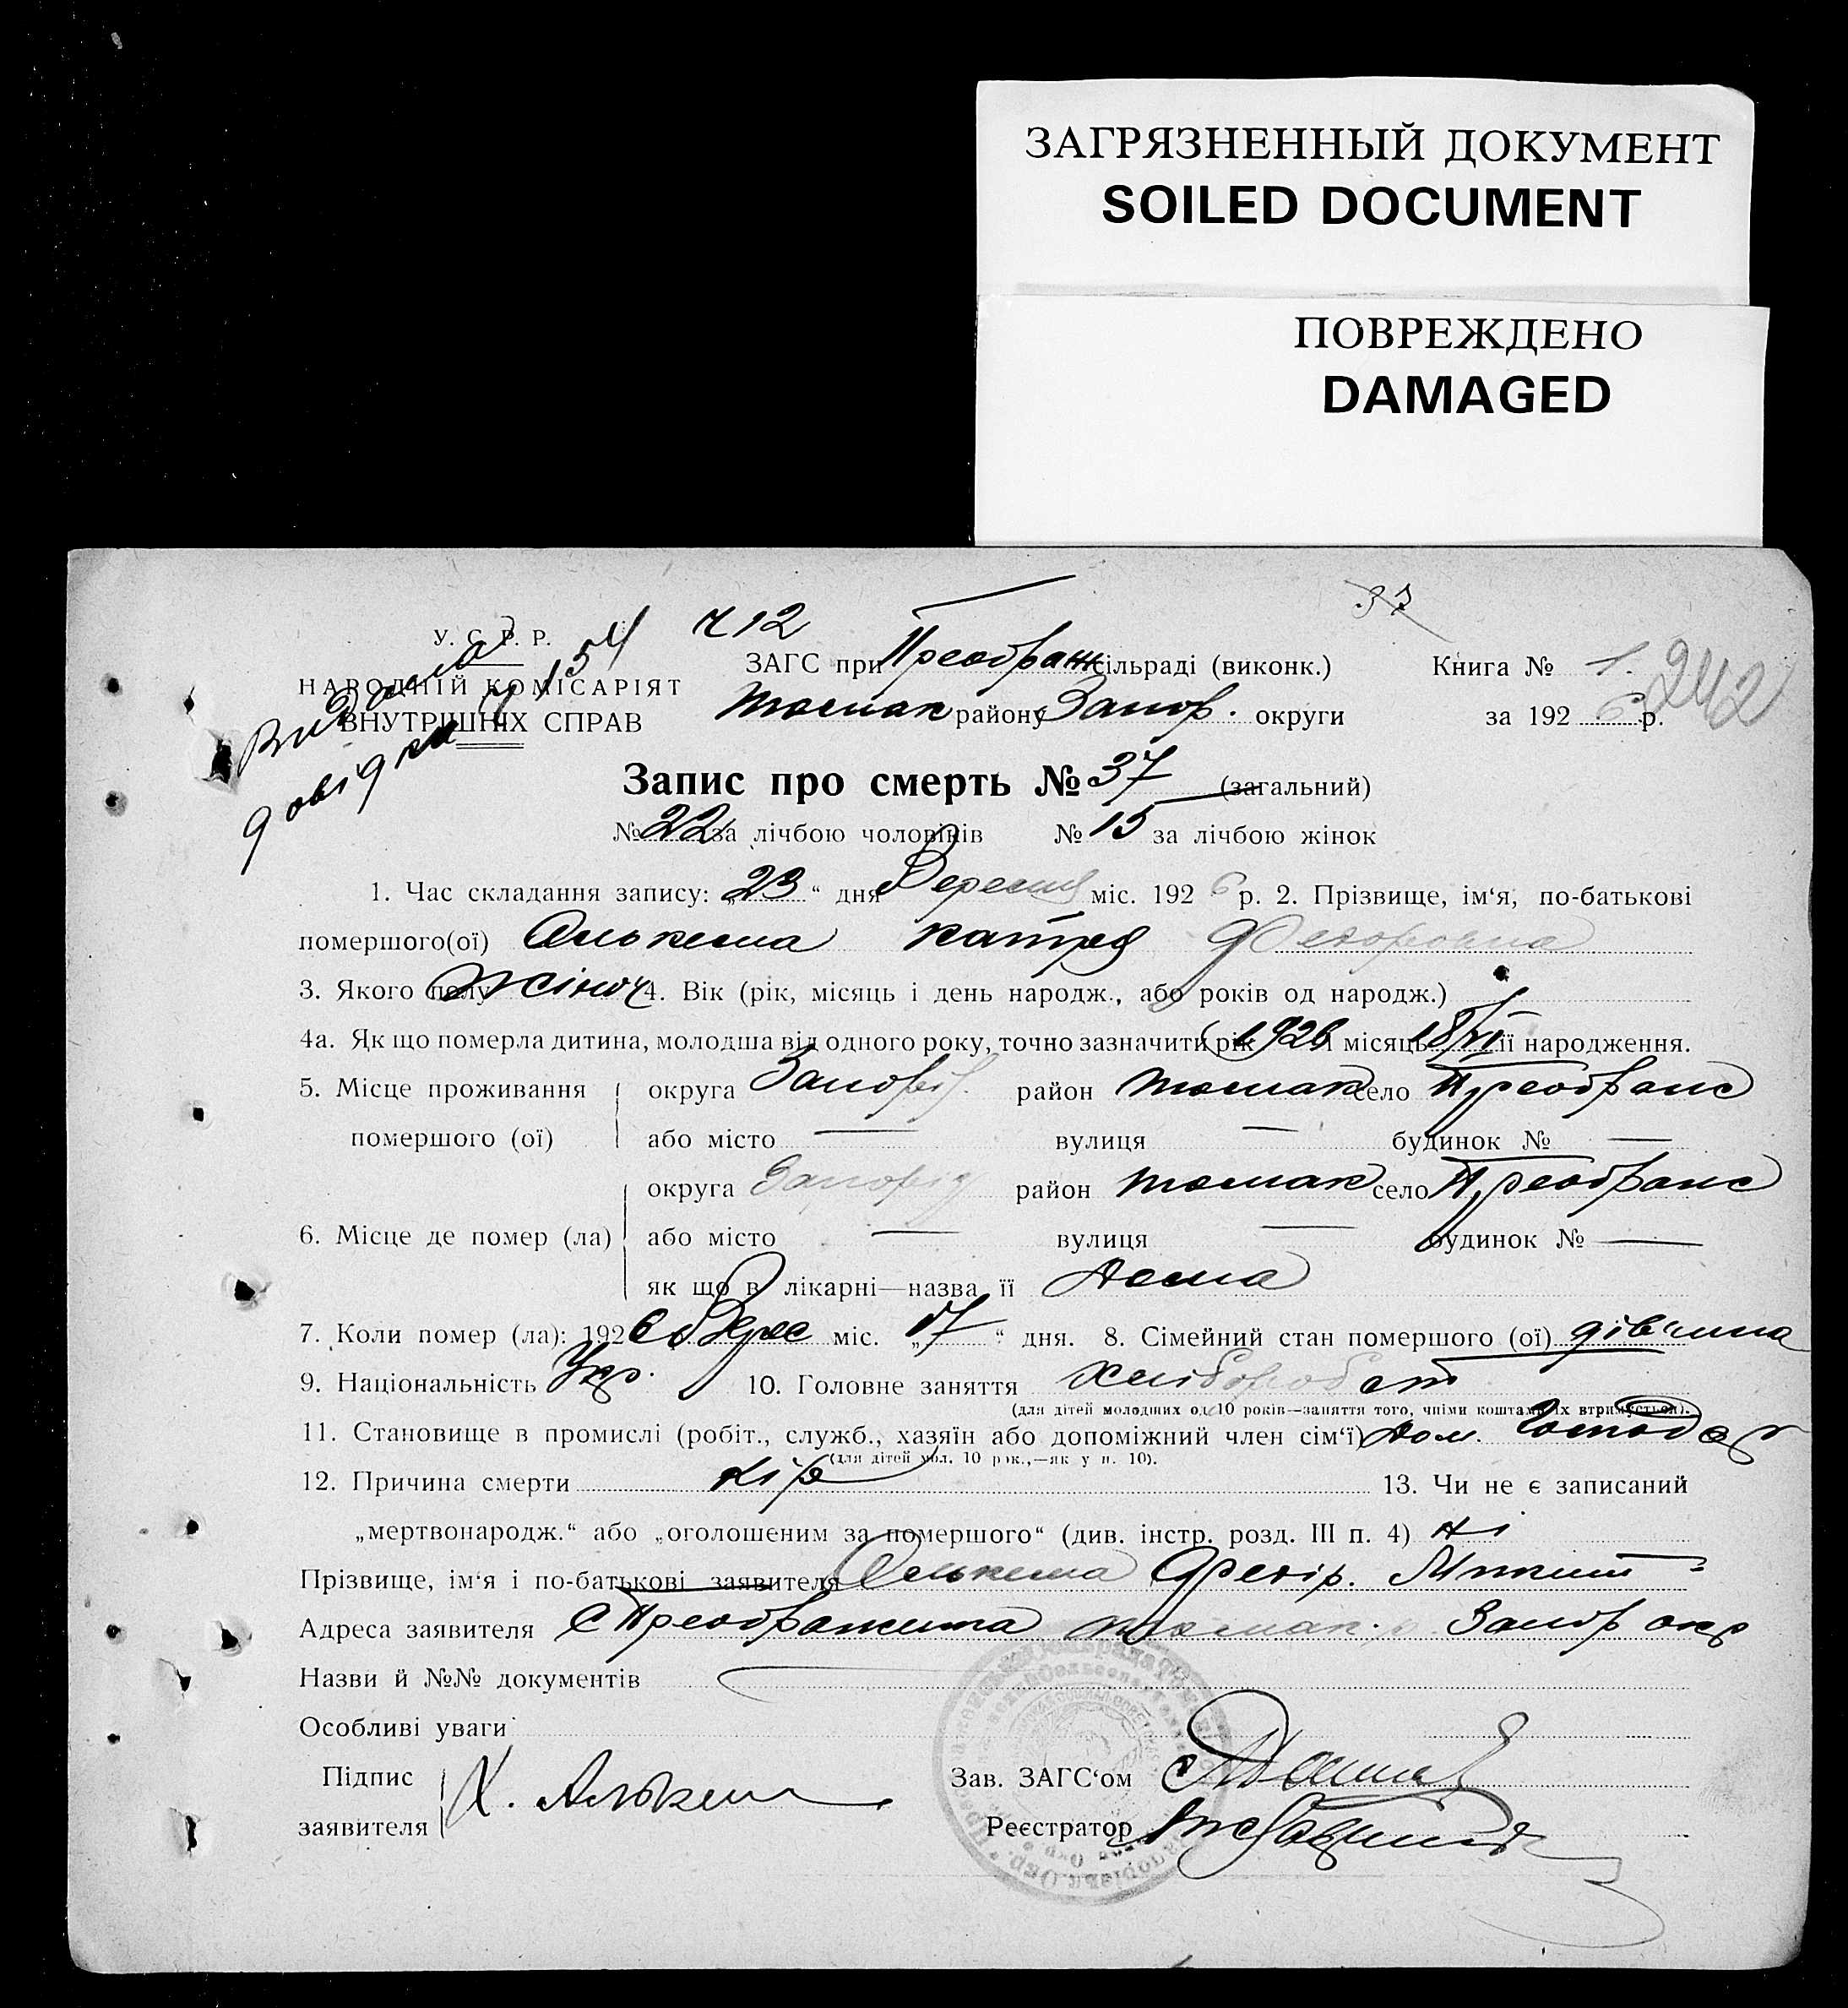 ЗАГРЯЗНЕННЫЙ ДОКУМЕНТ
SOILED DOCUMENT
ПОВРЕЖДЕНО
DAMAGED
37
У. С. Р. Р.
НАРОДНІЙ КОМІСАРІЯТ
ВНУТРІШНІХ СПРАВ
Видана
довідка ч 154
ч 12
ЗАГС при Преображ сільраді (виконк.)
Токмак району Запор. округи
Книга № 1.
за 1926 р.
242
Запис про смерть № 37 (загальний)
№ 22 за лічбою чоловіків № 15 за лічбою жінок
1. Час складання запису: „23“ дня Вересня міс. 1926 р. 2. Прізвище, ім‘я, по-батькові
помершого(ої) Олькена Катря Федоровна
3. Якого полу Жіноч 4. Вік (рік, місяць і день народж., або років од народж.)
4а. Як що померла дитина, молодша від одного року, точно зазначити рік 1926 і місяць 18/VI її народження.
5. Місце проживання
помершого (ої)
округа Запоріз. район Токмак село Преображ
або місто — вулиця — будинок № —
6. Місце де помер (ла)
округа Запоріз район Токмак село Преображ
або місто — вулиця — будинок № —
як що в лікарні—назва її дома
7. Коли помер (ла): 1926 р Верес міс. „17“ дня. 8. Сімейний стан помершого (ої) дівчина
9. Національність Укр. 10. Головне заняття хлібороб
(для дітей молодших од 10 років—заняття того, чиїми коштами їх втримується).
11. Становище в промислі (робіт., служб., хазяїн або допоміжний член сім‘ї) дом. Господар
(для дітей мол. 10 рок.,—як у п. 10).
12. Причина смерти кір 13. Чи не є записаний
„мертвонародж.“ або „оголошеним за помершого“ (див. інстр. розд. III п. 4) ні
Прізвище, ім‘я і по-батькові заявителя Олькена Федір. Микит
Адреса заявителя с Преображенка Токмак. р. Запор окр
Назви й №№ документів
Особливі уваги
Підпис
заявителя
Х. Алькен
Зав. ЗАГС‘ом
Реєстратор